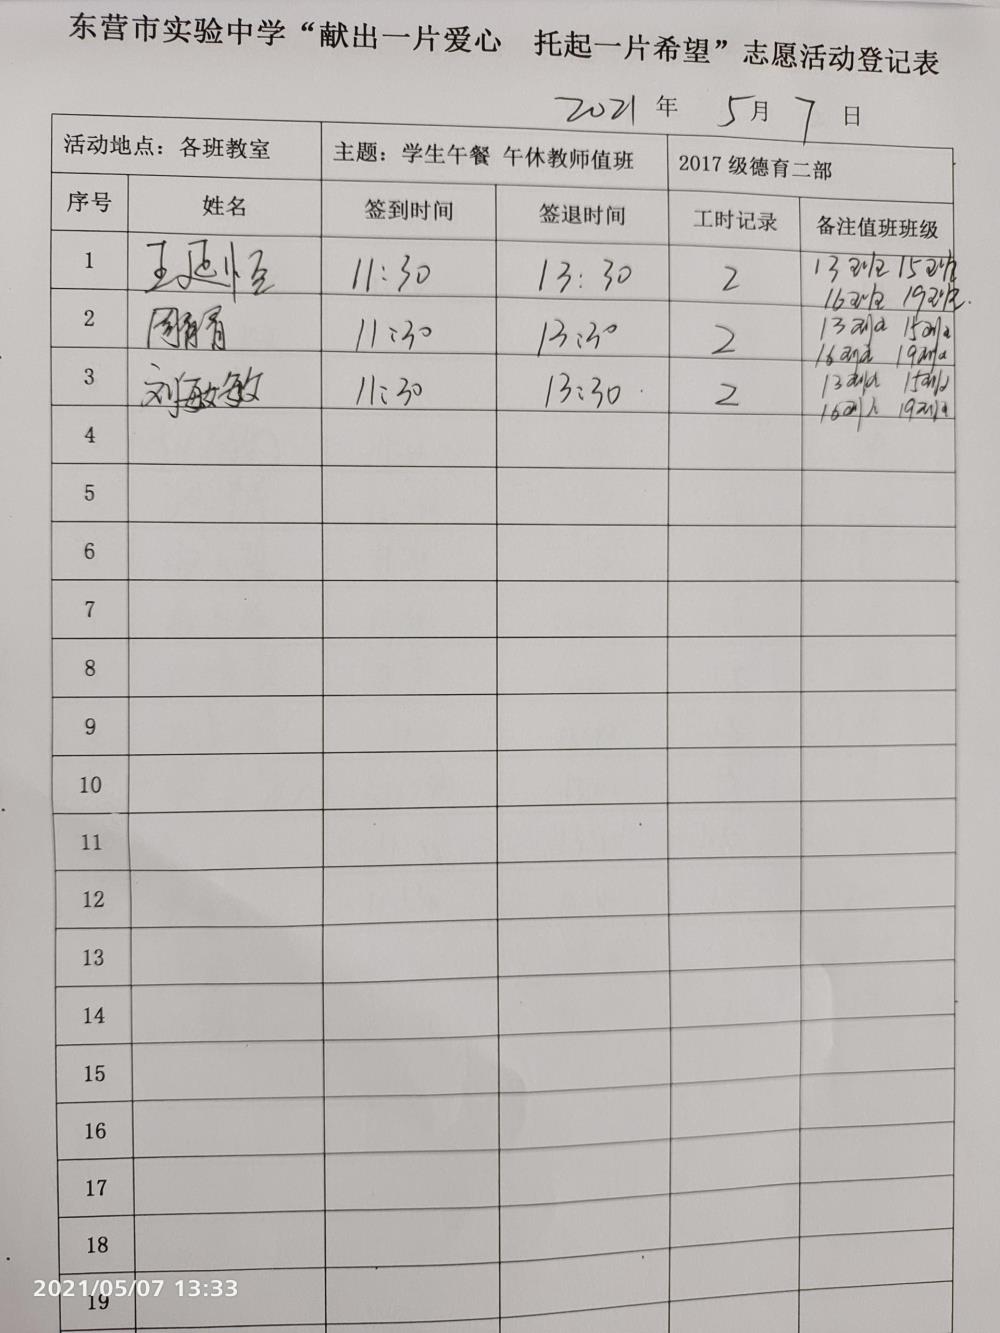 东营市实验中学“献出一片爱心 托起一片希望”志愿活动登记表
2021 年 5 月 7 日
活动地点：各班教室 主题：学生午餐 午休教师值班 2017 级德育二部
序号 姓名 签到时间 签退时间 工时记录 备注值班班级
1 王延恒 11:30 13:30 2 13班 15班
16班 19班
2 周青青 11:30 13:30 2 13班 15班
16班 19班
3 刘敏敏 11:30 13:30 2 13班 15班
16班 19班
4
5
6
7
8
9
10
11
12
13
14
15
16
17
18
19
2021/05/07 13:33